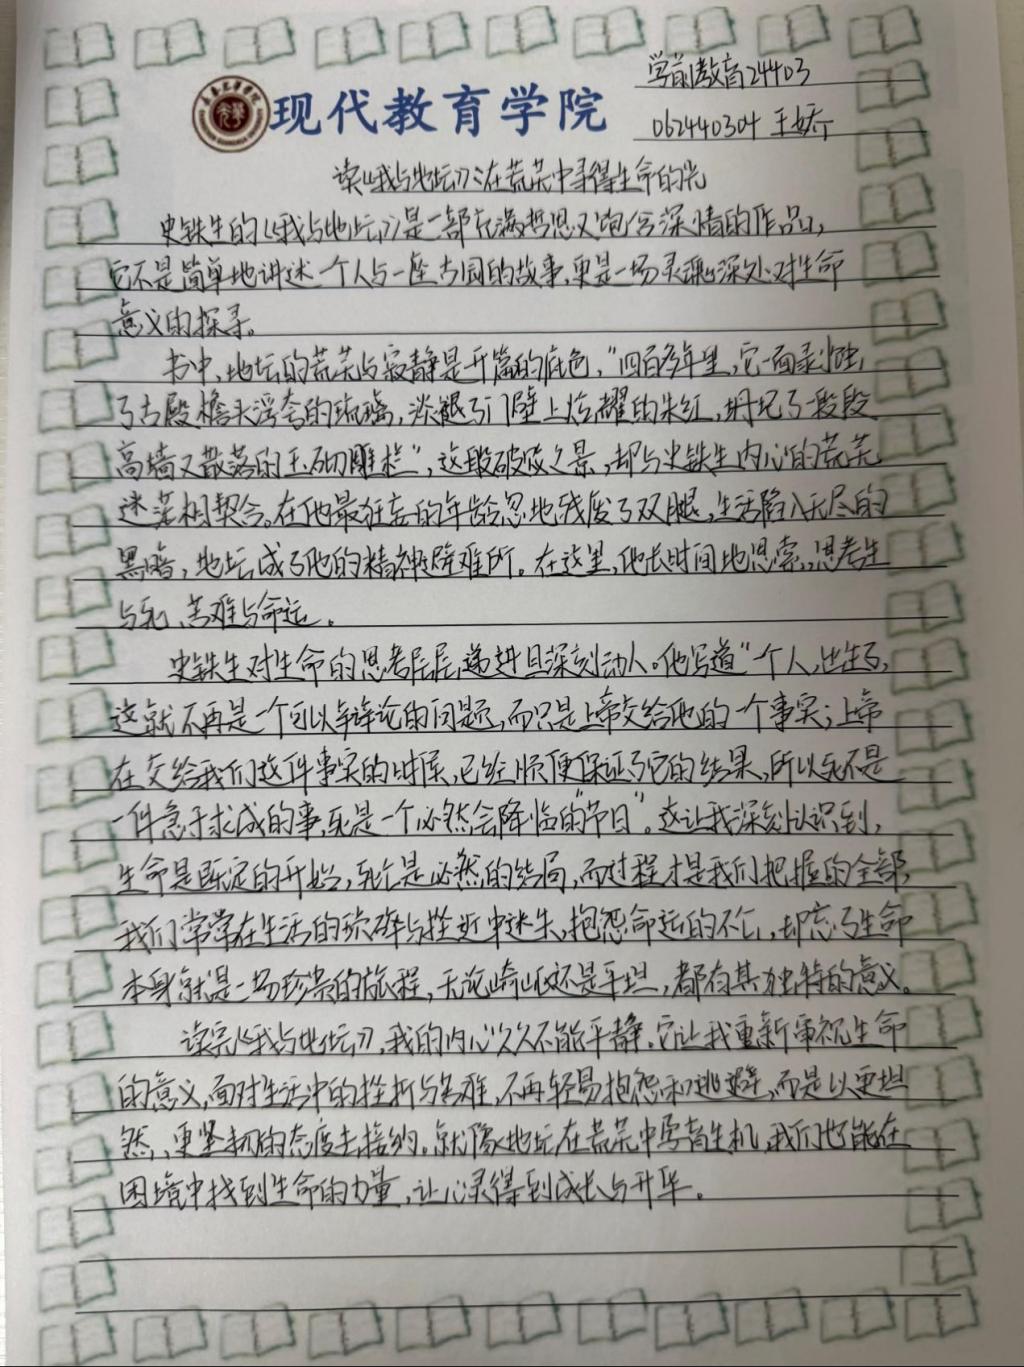 学前教育24403
现代教育学院
062440304 王娇
读《我与地坛》:在荒芜中寻得生命的光
史铁生的《我与地坛》是一部充满哲思又饱含深情的作品,
它不是简单地讲述一个人与一座古园的故事,更是一场灵魂深处对生命
意义的探寻。
书中,地坛的荒芜与寂静是开篇的底色,“四百多年里,它一面剥蚀
了古殿檐头浮夸的琉璃,淡褪了门壁上炫耀的朱红,坍圮了一段段
高墙又散落的玉砌雕栏”,这般破败之景,却与史铁生内心的荒芜
迷茫相契合。在他最狂妄的年龄忽地残废了双腿,生活陷入无尽的
黑暗,地坛成了他的精神避难所。在这里,他长时间地思索,思考生
与死、苦难与命运。
史铁生对生命的思考层层递进且深刻动人。他写道“一个人,出生了,
这就不再是一个可以争论的问题,而只是上帝交给他的一个事实;上帝
在交给我们这件事实的时候,已经顺便保证了它的结果,所以死不是
一件急于求成的事,死是一个必然会降临的“节日”。这让我深刻认识到,
生命是既定的开始,死亡是必然的结局,而过程才是我们把握的全部,
我们常常在生活的琐碎与挫折中迷失,抱怨命运的不公,却忘了生命
本身就是一场珍贵的旅程,无论崎岖还是平坦,都有其独特的意义。
读完《我与地坛》,我的内心久久不能平静。它让我重新审视生命
的意义,面对生活中的挫折与苦难,不再轻易抱怨和逃避,而是以更坦
然、更坚韧的态度去接纳。就像地坛在荒芜中孕育生机,我们也能在
困境中找到生命的力量,让心灵得到成长与升华。